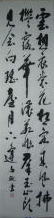 雲想衣裳花想容春風拂
檻露華濃若非群玉山頭
見會向瑤臺月下逢